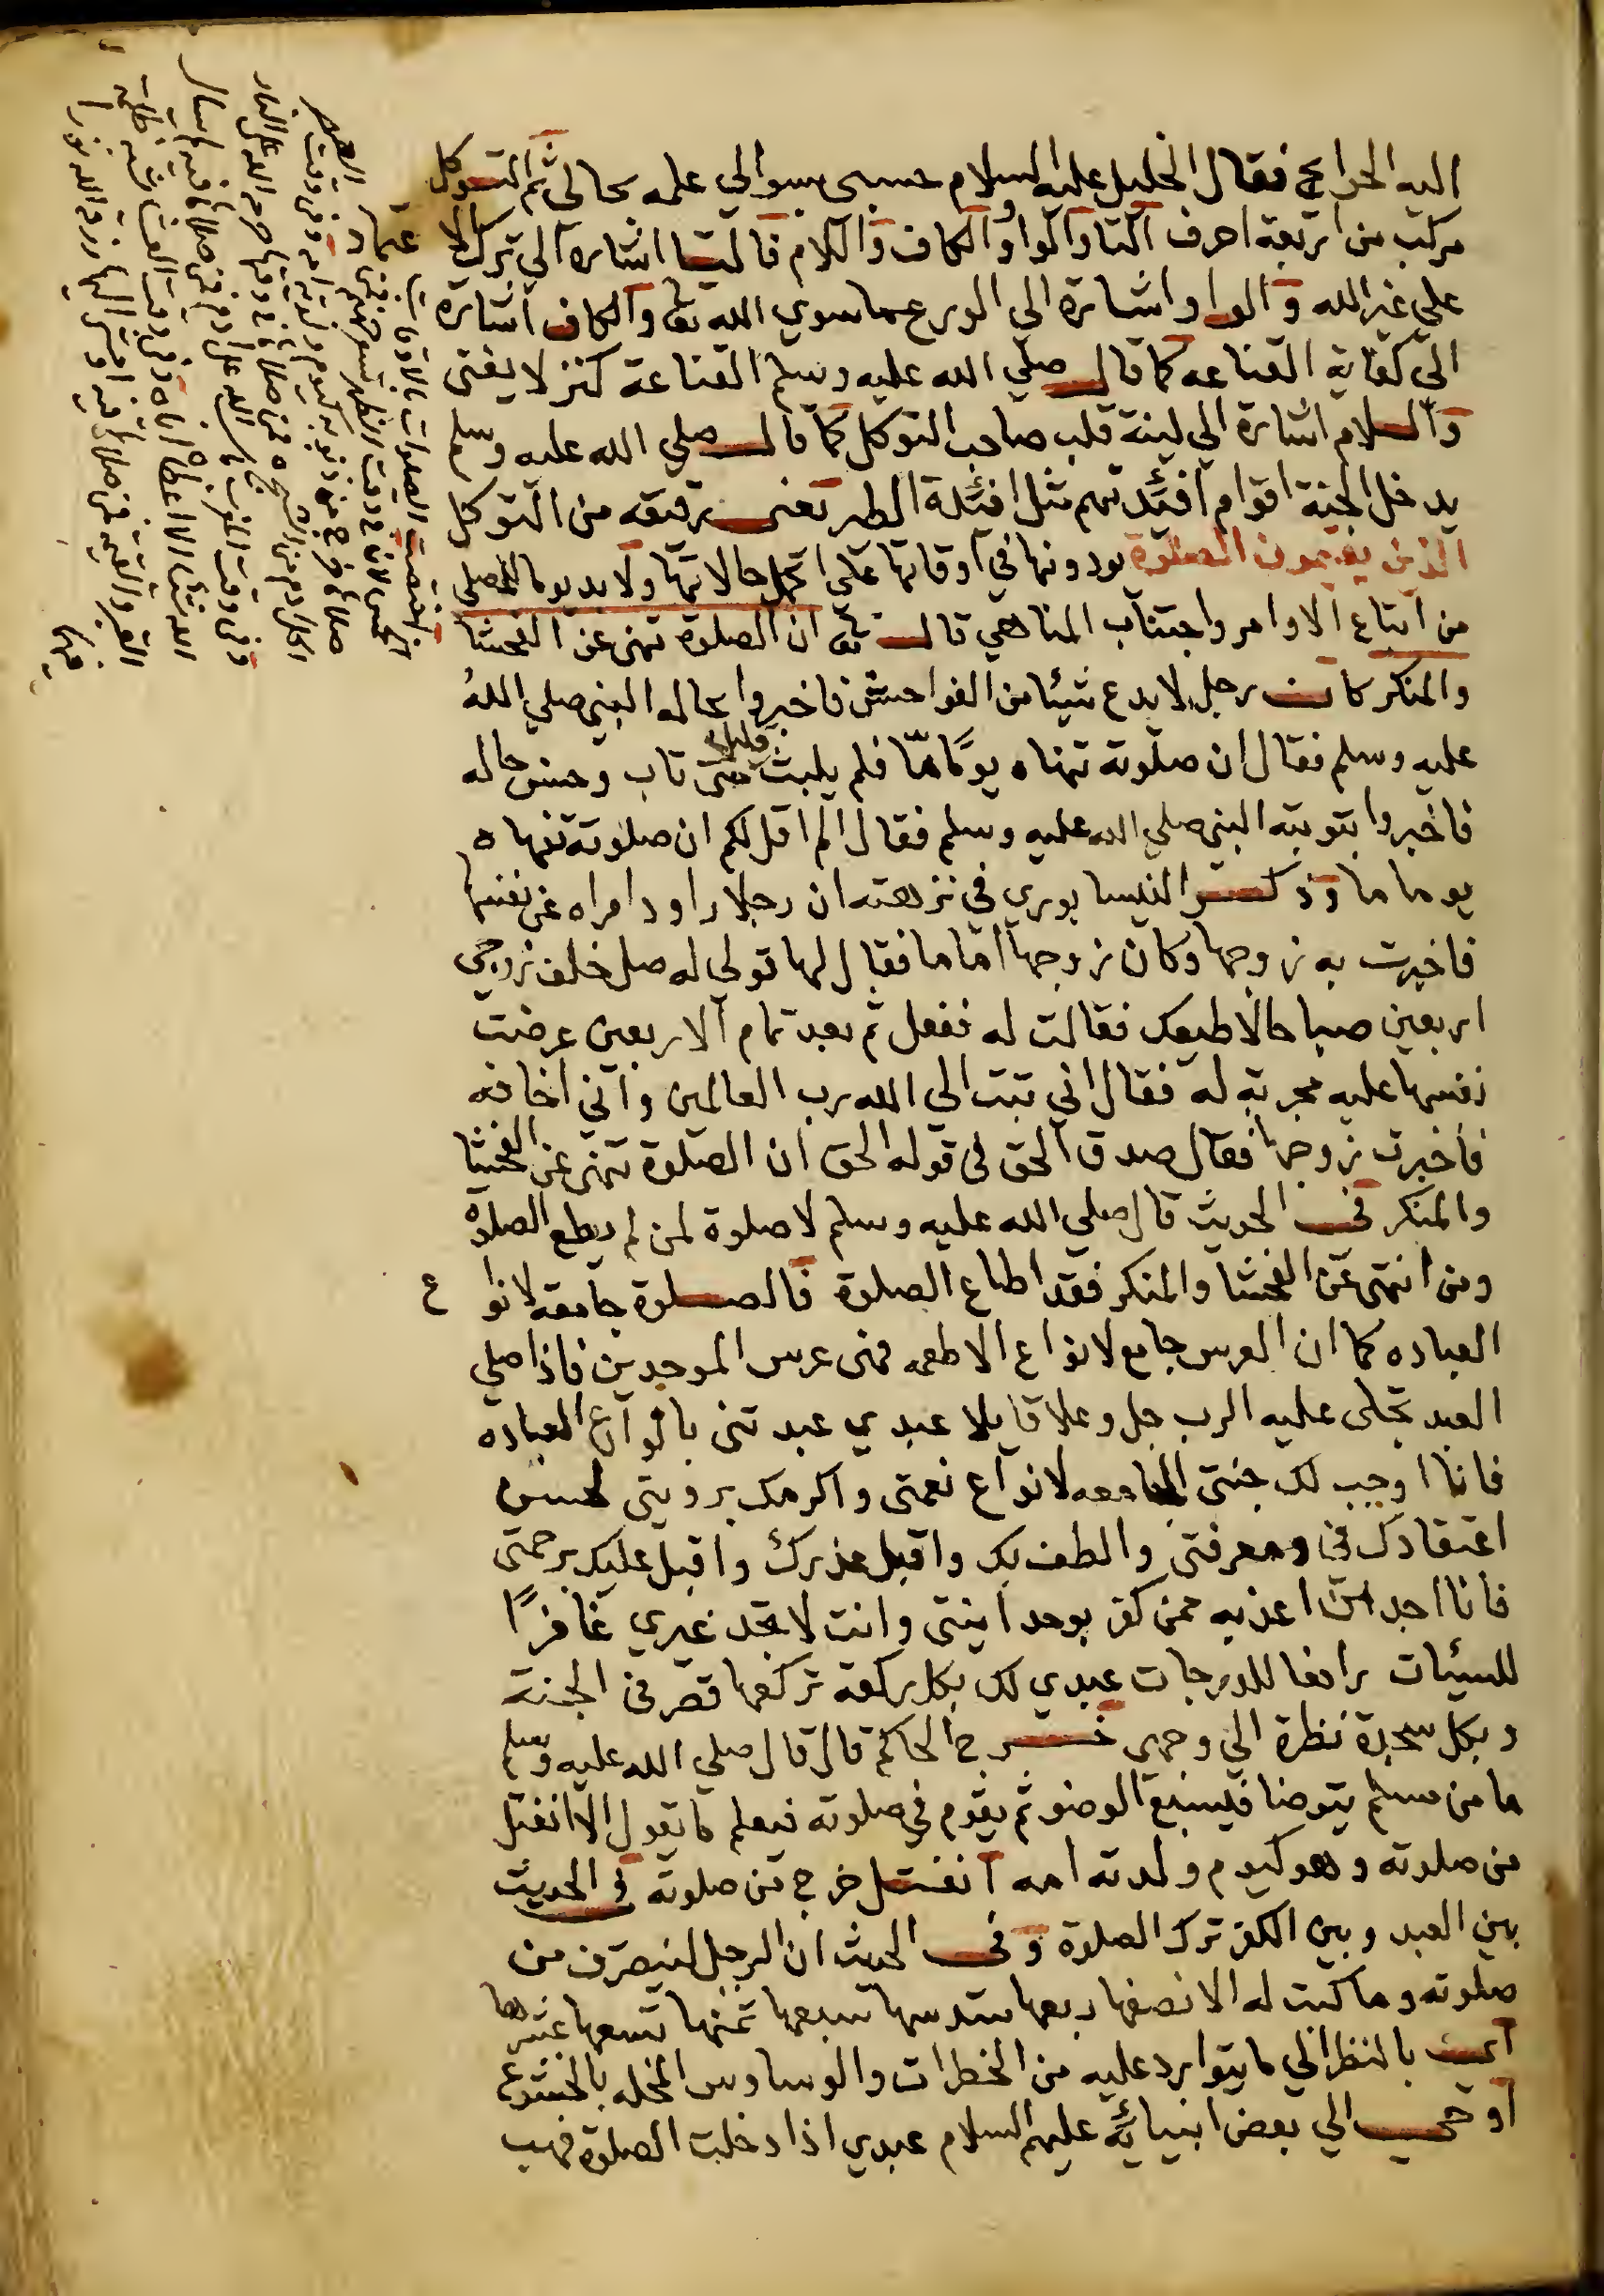 اليه الحوايج فقال الخليل عليه السلام حسبى سوالي علمه بحالى ثم التوكل
مركب من اربعة احرف التا والواو والكاف واللام فالتا اشارة الي ترك الا
عتماد
علي غير الله والواو اشارة الي الورع عما سوي الله تعا والكاف اشارة
الي كفاية القناعه كما قال صلي الله عليه وسلم القناعة كنز لا يفنى
والسلام اشارة الي لينة قلب صاحب التوكل كما قال صلي الله عليه وسلم
يدخل الجنة اقوام افئدتهم مثل افئدة الطير يعنى رقيقه من التوكل
الذين يقيمون الصلوة يودونها في اوقاتها على اكمل حالاتها ولا بد يوما للمصلى
من اتباع الاوامر واجتناب المناهي قال تعا ان الصلوة تنهى عن الفحشا
والمنكر كان رجل لا يدع شيئا من الفواحش فاخبروا بحاله النبي صلي الله
عليه وسلم فقال ان صلوته تنهاه يومًا مّا فلم يلبث قليلا حتى تاب وحسن حاله
فاخبروا بتوبته النبي صلي الله عليه وسلم فقال الم اقل لكم ان صلوته تنهاه
يوما ما وذكر النيسابوري في نزهته ان رجلا راود امراه عن نفسها
فاخبرت به زوجها وكان زوجها اماما فقال لها قولى له صل خلف زوجي
اربعين صباحا لاطيعك فقالت له ففعل ثم بعد تمام الاربعين عرضت
نفسها عليه مجربة له فقال اني تبت الي الله رب العالمين واني اخافه
فاخبرت زوجها فقال صدق الحق في قوله الحق ان الصلوة تنهى عن الفحشا
والمنكر في الحديث قال صلي الله عليه وسلم لا صلوة لمن لم يطع الصلاة
ومن انتهى عن الفحشا والمنكر فقد اطاع الصلوة فالصلوة جامعة لانوا ع
العباده كما ان العرس جامع لانواع الاطعمه فهى عرس الموحدين فاذا صلي
العبد تجلى عليه الرب جل وعلا قايلا عبدي عبدتنى بانواع العباده
فانا اوجب لك جنتى الجامعه لانواع نعمتى واكرمك برويتى لحسن
اعتقادك في ومعرفتي والطف بك واقبل عذرك واقبل عليك برحمتى
فانا اجد من اعذبه ممن كفر بوحدانيتى وانت لا تجد غيري غافرًا
للسيئات رافعا للدرجات عبدي لك بكل ركعة تركعها قصر في الجنة
وبكل سجدة نظرة الي وجهي خرج الحاكم قال قال صلي الله عليه وسلم
ما من مسلم يتوضا فيسبغ الوضو ثم يقوم في صلوته فيعلم ما يقول الا انفتل
من صلوته وهو كيوم ولدته امه انفتل خرج من صلوته في الحديث
بين العبد وبين الكفر ترك الصلوة وفي الحديث ان الرجل لينصرف من
صلوته وما كتبت له الا نصفها ربعها سدسها سبعها ثمنها تسعها عشرها
اي بالنظر الي ما يتوارد عليه من الخطرات والوساوس المخله بالخشوع
اوحي الي بعض انبيائه عليهم السلام عبدي اذا دخلت الصلوة فهب